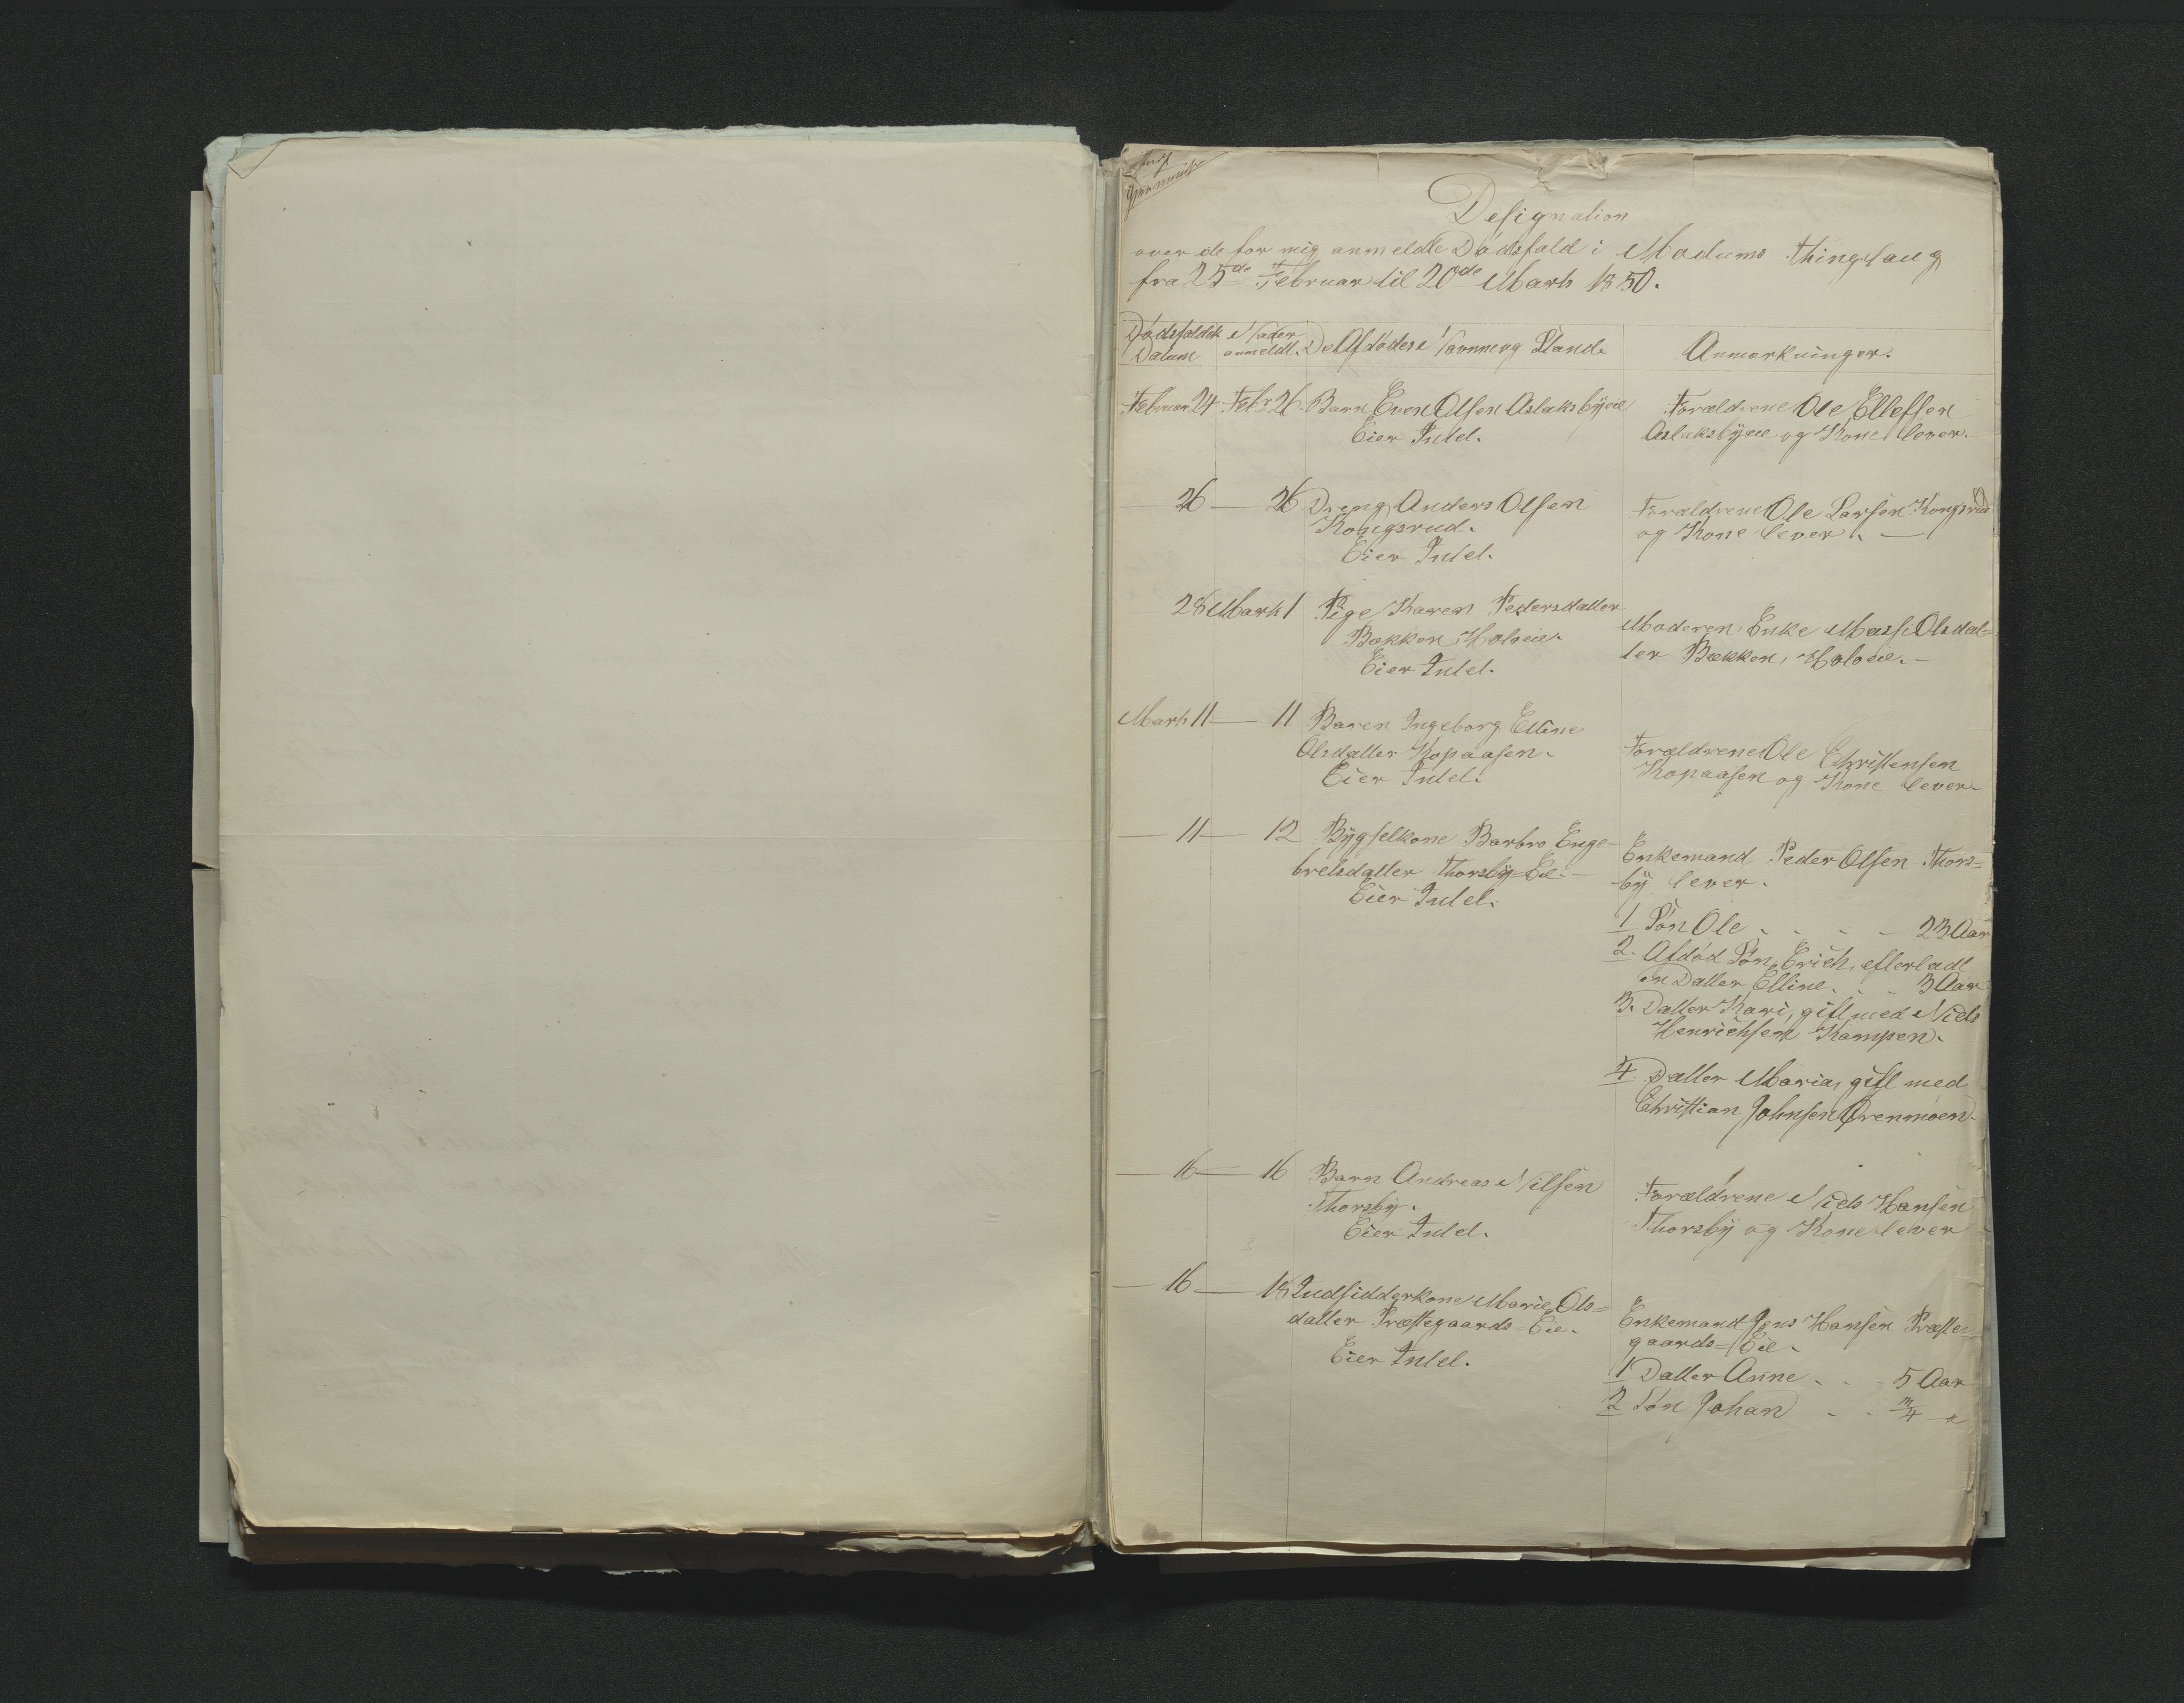 Designation
over de for mig anmeldte Dødsfald i Modums Thinglaug
fra 25de Februar til 20de Marts 1850.
Dødsfaldets Datum
Naar anmeldt.
De Afdødes Navne og Stand.
Anmærkninger.
Februar 24 Febr 26 Barn Even Olsen Aslaksbyeie
Eier Intet.
Forældrene Ole Ellefsen
Aslaksbyeie og Kone lever.
— 26 — 26 Dreng Anders Olsen
Kongsrud.
Eier Intet.
Forældrene Ole Larsen Kongsrud
og Kone lever. —
28 Marts 1 Pige Karen Pedersdatter
Bækken, Holoeie.
Eier Intet.
Moderen, Enke Olsdat=
ter Bækken, Holoeie. —
Marts 11 — 11 Baren Ingeborg Elline
Olsdatter Kopaasen.
Eier Intet.
Forældrene Ole Christensen
Kopaasen og Kone lever.
— 11 — 12 Bygselkone Barbro Enge=
bretsdatter Thorsby-Eie. —
Eier Intet.
Enkemand Peder Olsen Thors=
by lever.
1 Søn Ole . . . - 23 Aar
2. Afdød Søn, Erich, efterladt
en Datter Elline . . - 3 Aar
3. Datter Kari, gift med Niels
Henrichsen Kampen.
4 Datter Maria, gift med
Christian Johnsen Ørenmoen.
— 16 — 16 Barn Andreas Nilsen
Thorsby.
Eier Intet.
Forældrene Niels Hansen
Thorsby og Kone lever
— 16 — 18 Indsidderkone Marie Ols=
datter Præstegaards-Eie.
Eier Intet.
Enkemand Jens Hansen Præste=
gaards=Eie.
1 Datter Anne . . - 5 Aar
2 Søn Johan - - 3/4 "